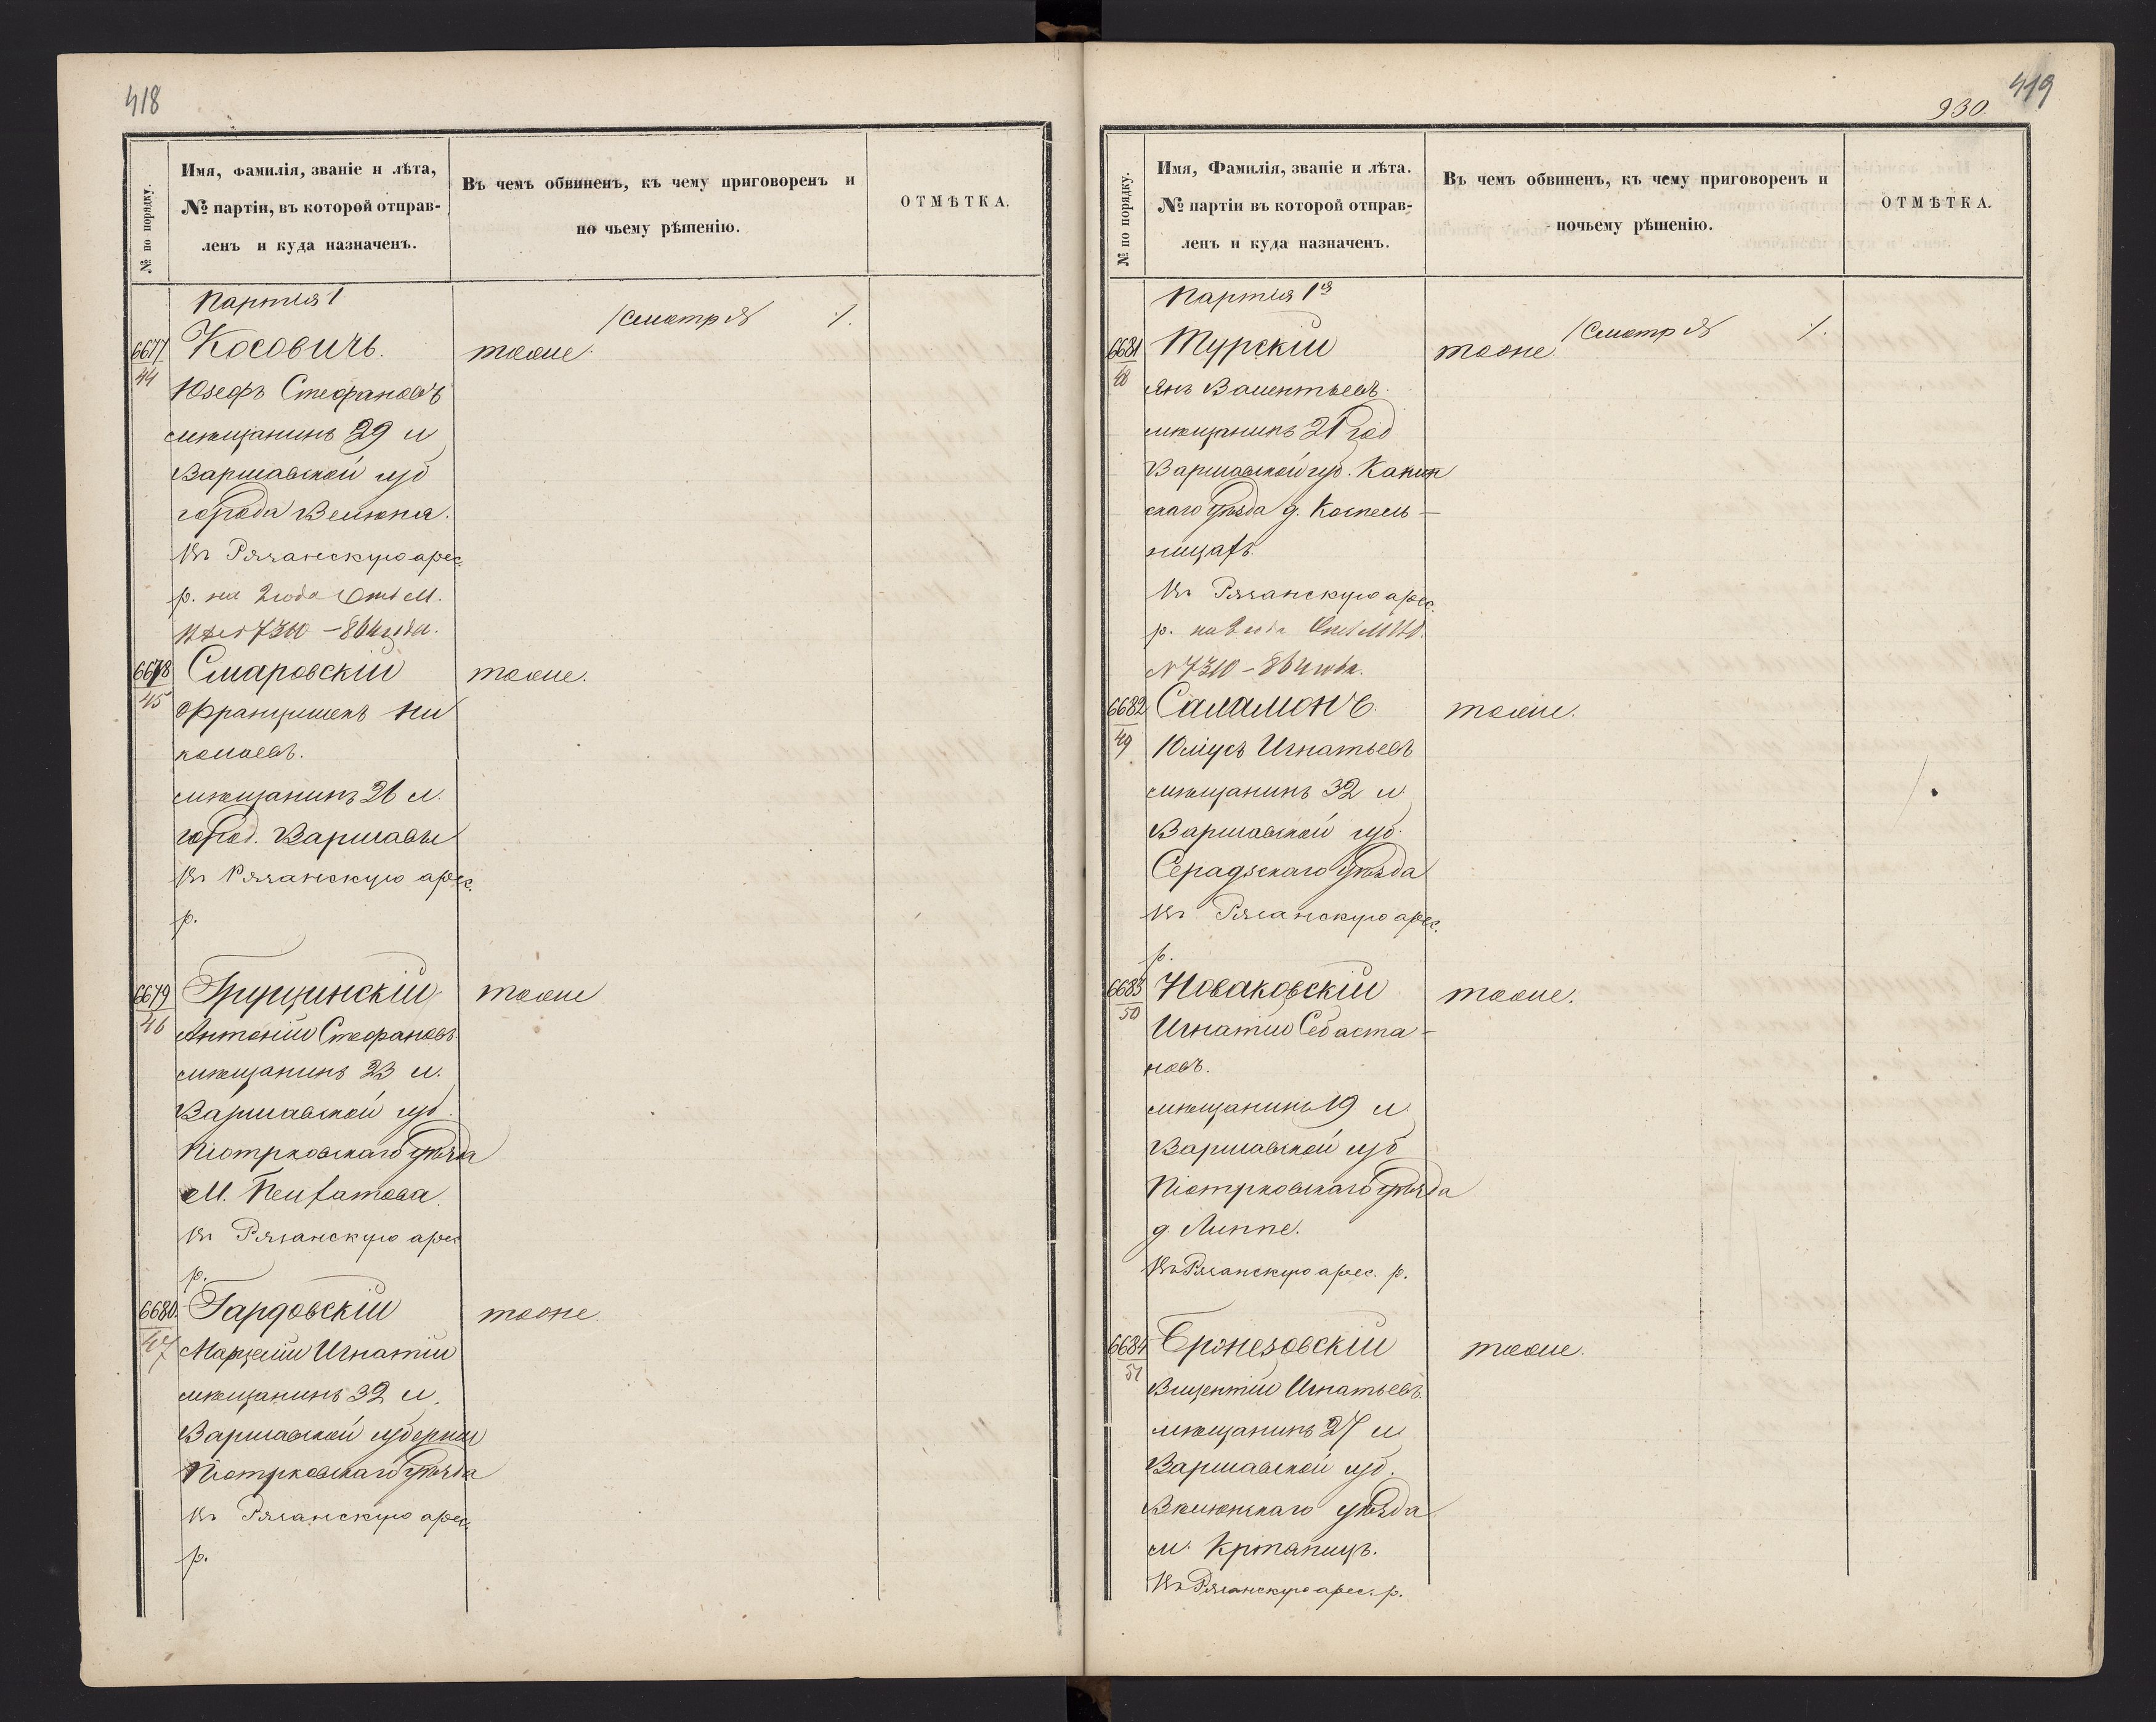 418
№ по порядку.
Имя, фамилія, званіе и лѣта,
№ партіи, въ которой отправ-
ленъ и куда назначенъ.
Въ чемъ обвиненъ, къ чему приговоренъ и
по чьему рѣшенію.
ОТМѢТКА.
Партія 1
/Смотр
6677
44
Косовичъ.
тоже.
Юзефъ Стефановъ
мѣщанинъ 29 л
Варшавской губ
города Велюня.
въ Рязанскую арес.
р. на 2 года
7310 - 864 года.
6678
45
Смаровскій
тоже.
Францишекъ Ни
колаевъ.
мѣщанинъ 26 л.
город. Варшавы
въ Рязанскую арес.
р.
6679
46
Грущинскій
тоже
Антоній Стефановъ
мѣщанинъ 23 л.
Варшавской губ.
Піотрковскаго уѣзда
М.
въ Рязанскую арес
р.
6680.
47
Гардовскій
тоже.
Марцелій Игнатій
мѣщанинъ 32 л.
Варшавской губерніи
Піотрковскаго уѣзда
въ Рязанскую арес.
р.
419
930.
№ по порядку.
Имя, Фамилія, званіе и лѣта.
№ партіи въ которой отправ-
ленъ и куда назначенъ.
Въ чемъ обвиненъ, къ чему приговоренъ и
почьему рѣшенію.
ОТМѢТКА.
Партія 1я
/Смотр
6681
48
Турскій
тоже.
Янъ Валентьевъ
мѣщанинъ 21 год
Варшавской губ.
скаго уѣзда д.
въ Рязанскую арес.
р. на года
№ 7310 - 864 года.
6682
49
Саламонъ.
тоже.
Юліусъ Игнатьевъ
мѣщанинъ 32 л
Варшавской губ.
Серадзскаго уѣзда
въ Рязанскую арес.
р.
6683
50
Новаковскій
тоже.
Игнатій Себастя-
новъ.
мѣщанинъ 19 л.
Варшавской губ
Піотрковскаго уѣзда
д. Липпе.
въ Рязанскую арес. р.
6684
51
Бронезовскій
тоже.
Вицентій Игнатьевъ.
мѣщанинъ 27 л
Варшавской губ.
Велюнскаго уѣзда
м.
въ Рязанскую арес. р.